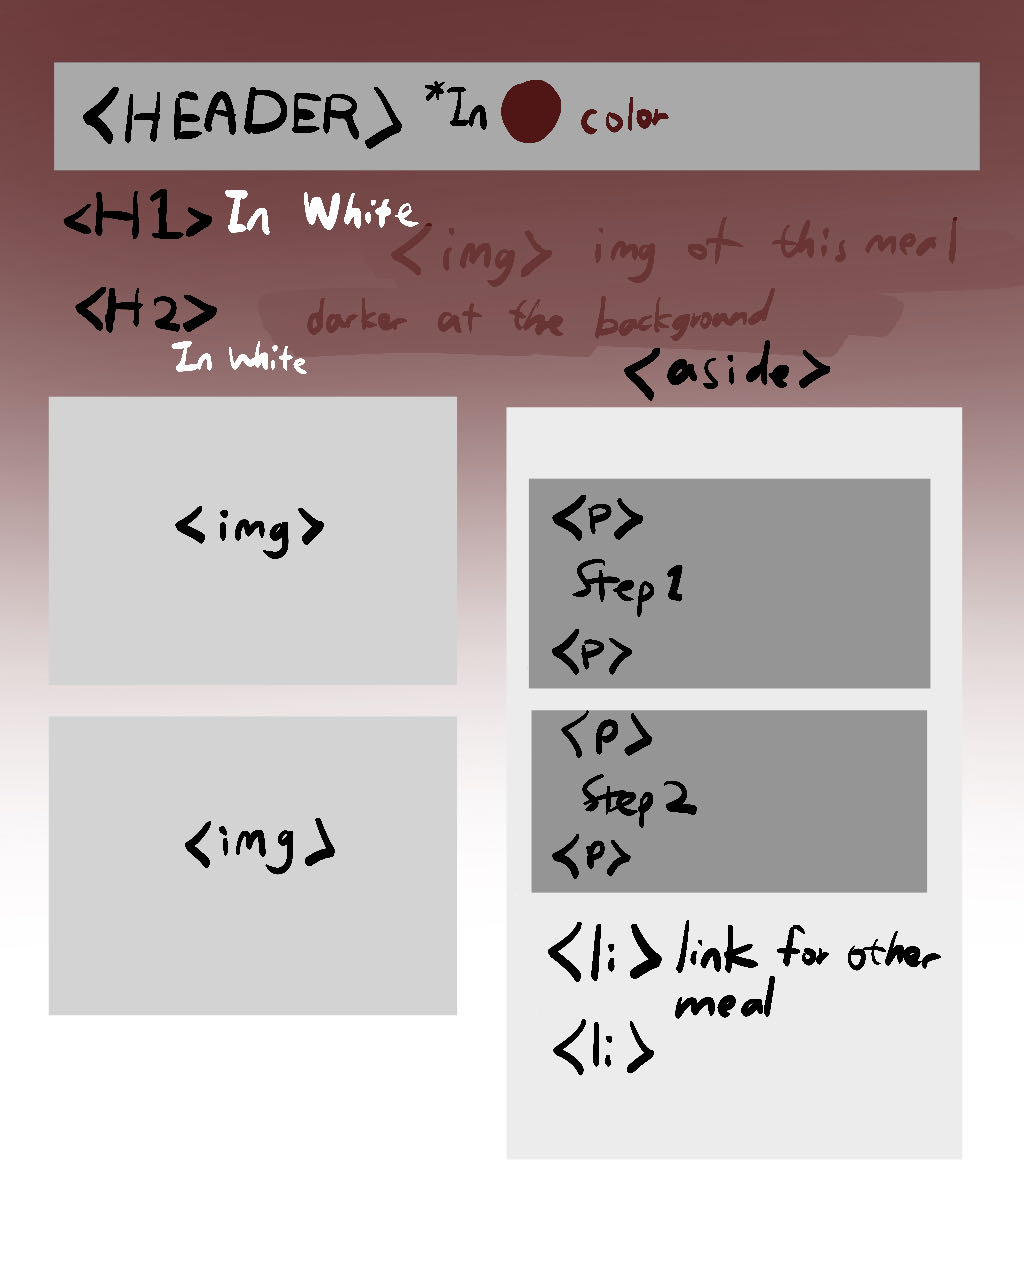 <HEADER> *In color
<H1> In White
<img> img of this meal
<H2> darker at the background
In white
<aside>
<img>
<p>
Step 1
<p>
<p>
Step 2
<p>
<img>
<li> link for other
meal
<li>